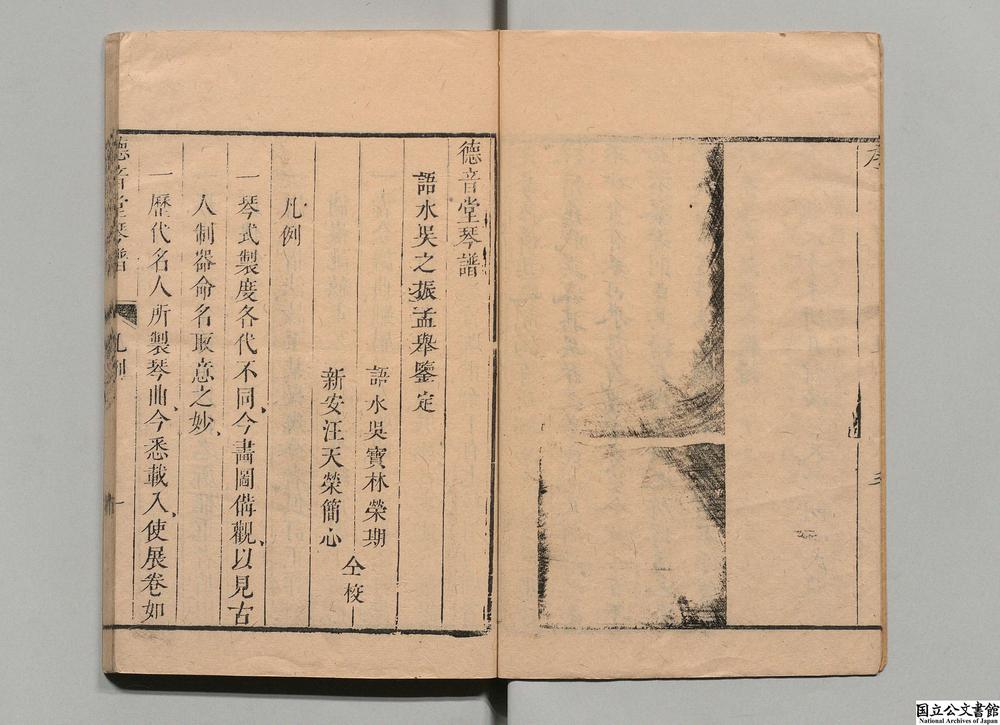 序
德音堂琴譜
語水吳之振孟舉鑒定
語水吳寶林榮期
新安汪天榮簡心
仝校
凡例
一琴式製度各代不同、今畵圖備觀、以見古
人制器命名取意之妙、
一歷代名人所製琴曲、今悉載入、使展卷如
德音堂琴譜
凡例
一
国立公文書館
National Archives of Japan